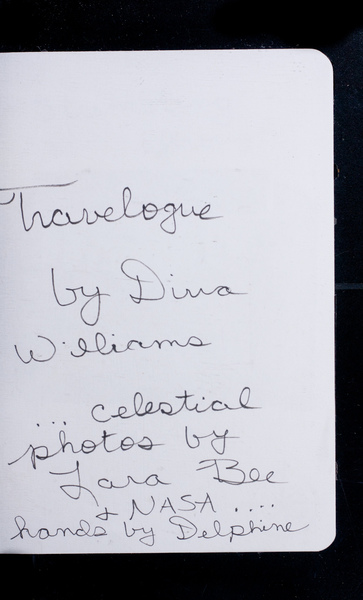 Travelogue
by Dina
Williams
... celestial
photos by
Lara Bee
& NASA ....
hands by Delphine